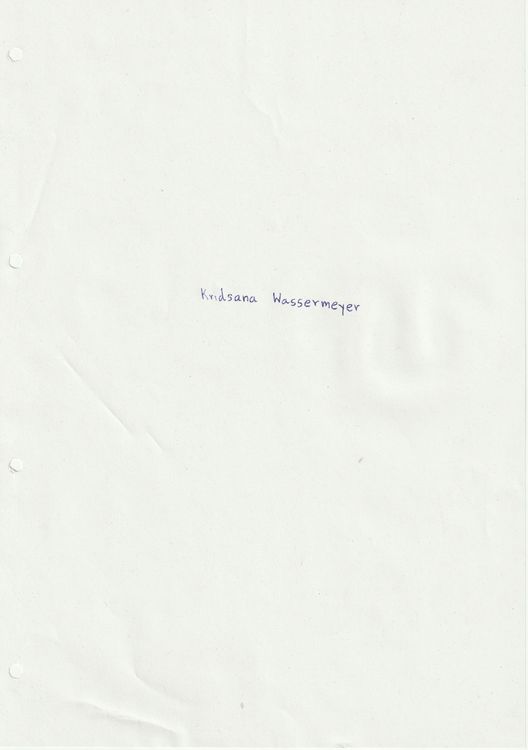 Kridsana Wassermeyer